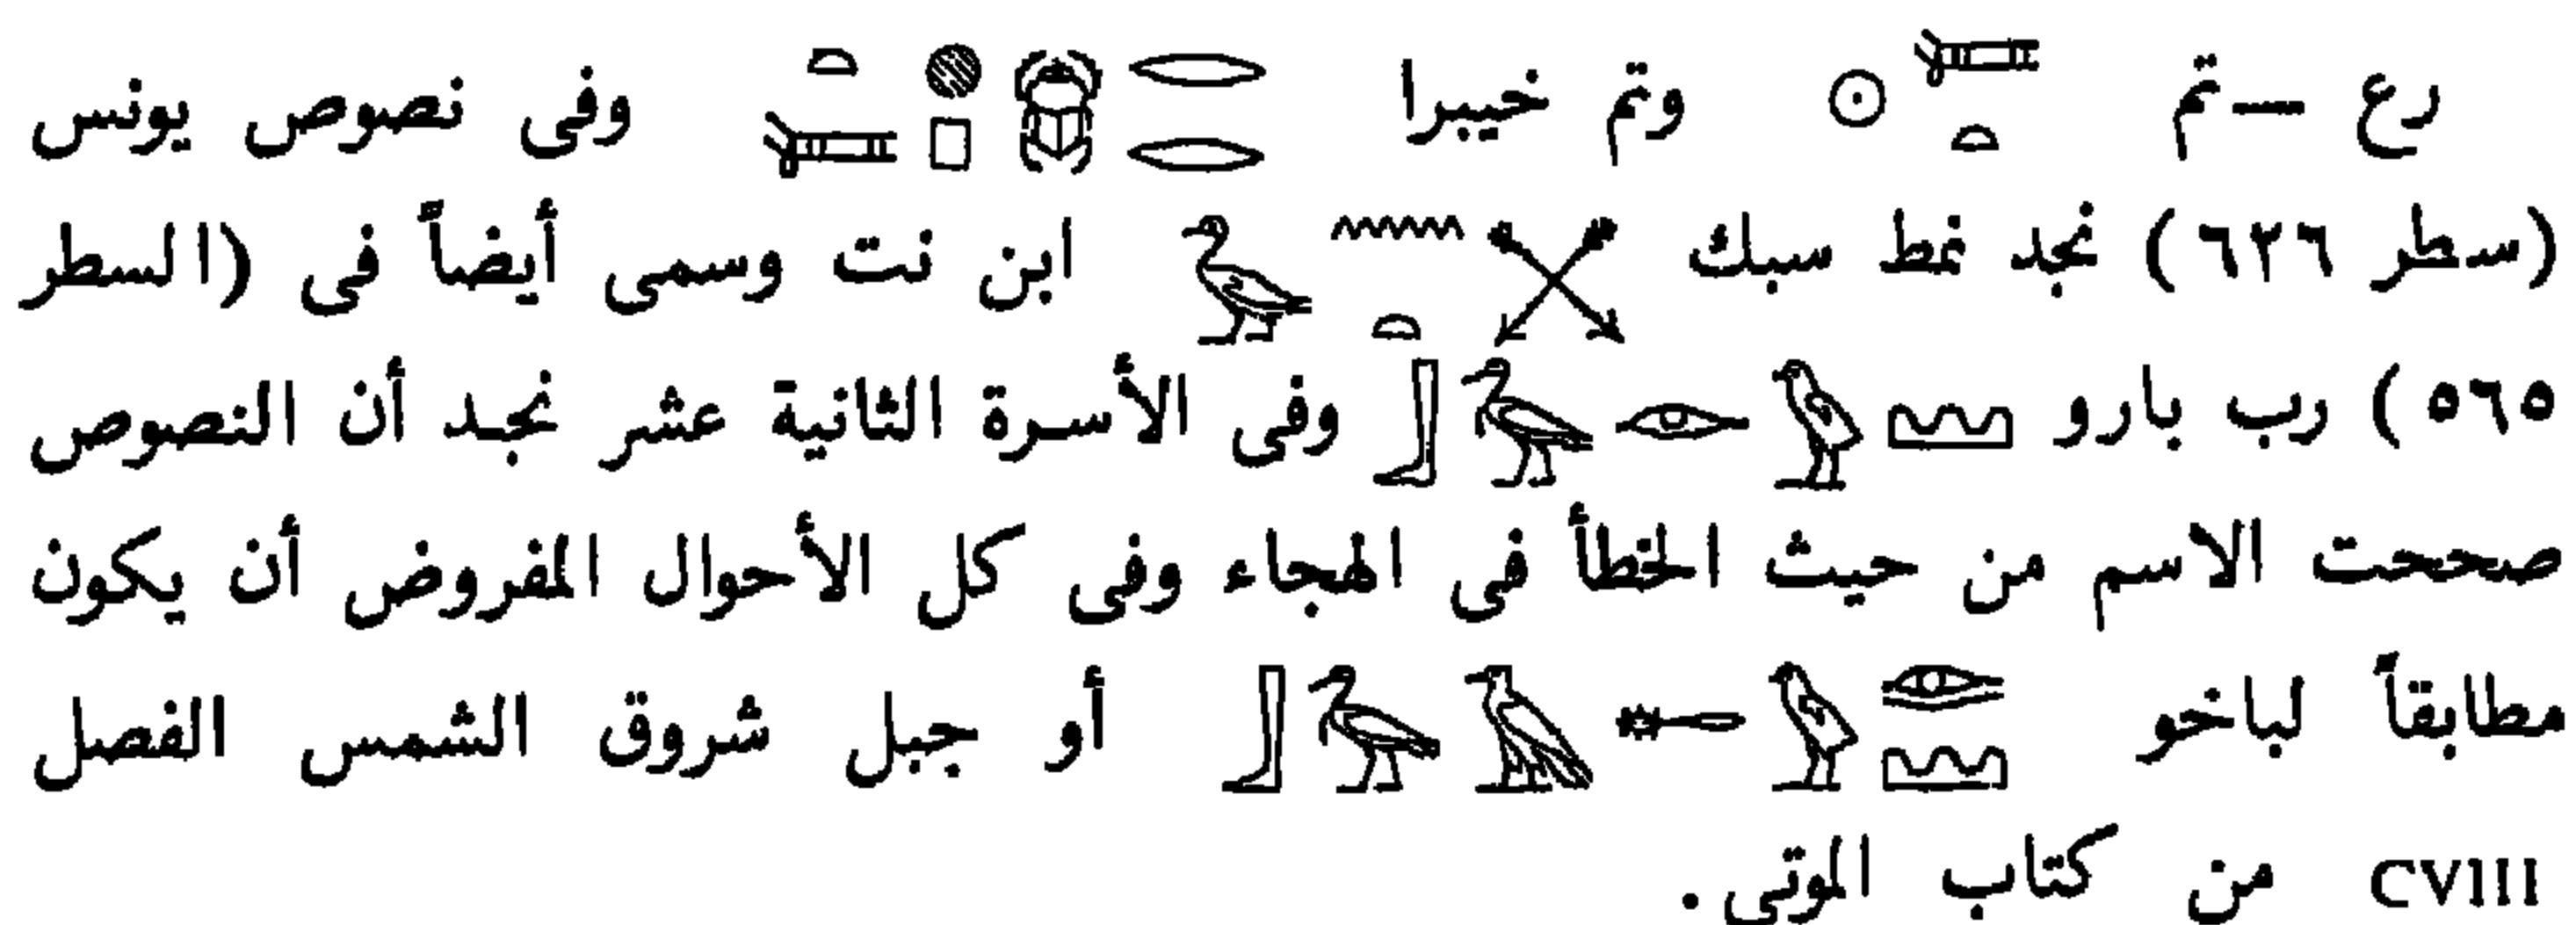 رع — تم 𓇳𓍃𓏏 وتم خيبرا 𓏏𓍃𓐍𓊪𓆣𓂋𓂋 وفى نصوص يونس
(سطر ٦٢٦) نجد نمط سبك 𓅭𓈖𓏏𓋋 ابن نت وسمى أيضاً فى (السطر
٥٦٥) رب بارو 𓃀𓅡𓁹𓅱𓈋 وفى الأسرة الثانية عشر نجد أن النصوص
صححت الاسم من حيث الخطأ فى الهجاء وفى كل الأحوال المفروض أن يكون
مطابقاً لباخو 𓃀𓅡𓄿𓆼𓅱𓁺𓈋 أو جبل شروق الشمس الفصل
CVIII من كتاب الموتى .